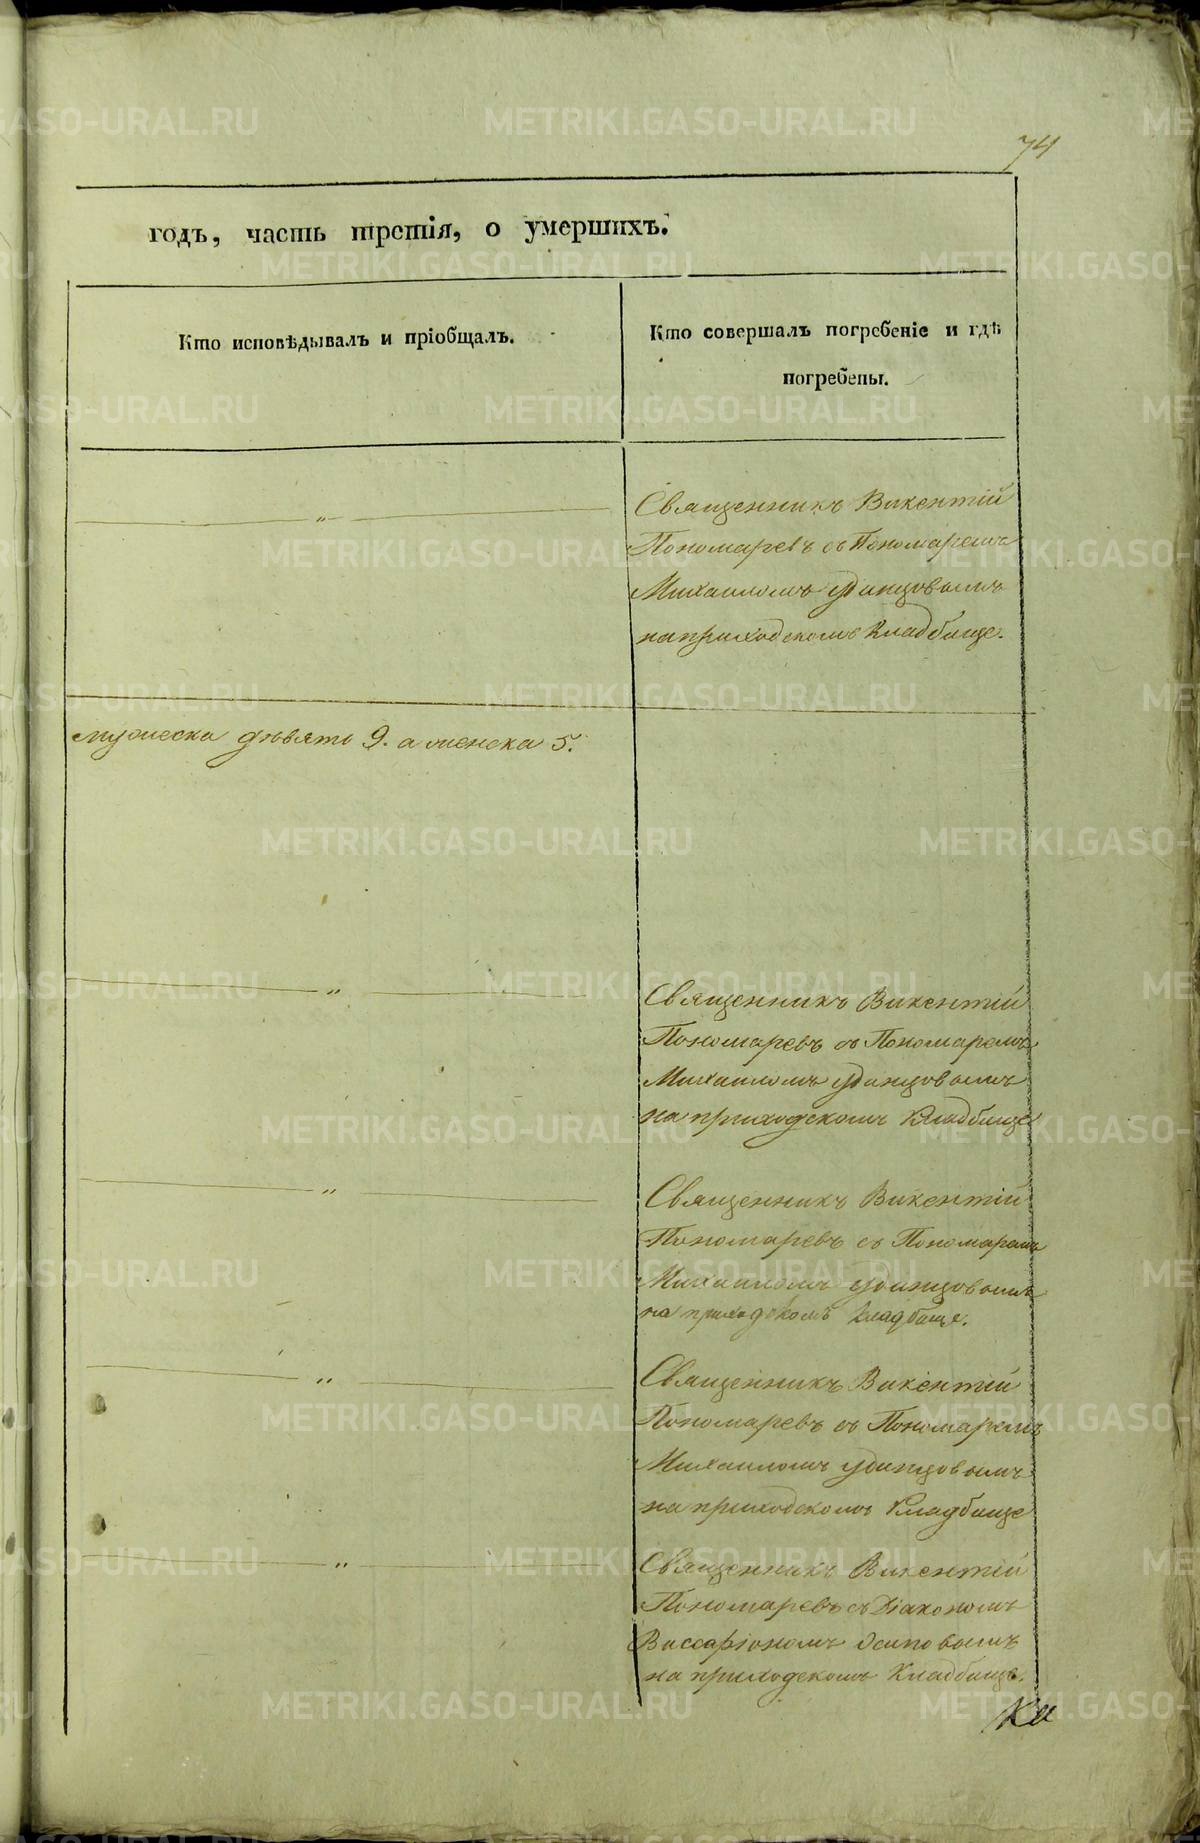 74
годъ, часть третія, о умершихъ.
Кто исповѣдывалъ и пріобщалъ.
Кто совершалъ погребеніе и гдѣ
погребены.
Священникъ Викентій
Пономаревъ съ Пономаремъ
Михаиломъ Удинцовымъ
на приходскомъ Кладбище.
мужеска девять 9. а женска 5.
Священникъ Викентій
Пономаревъ съ Пономаремъ
Михаиломъ Удинцовымъ
на приходскомъ Кладбище
Священникъ Викентій
Пономаревъ съ Пономаремъ
Михаиломъ Удинцовымъ
на приходскомъ Кладбище.
Священникъ Викентій
Пономаревъ съ Пономаремъ
Михаиломъ Удинцовымъ
на приходскомъ Кладбище
Священникъ Викентій
Пономаревъ съ Діакономъ
Виссаріономъ Осиповымъ
на приходскомъ Кладбище.
METRIKI.GASO-URAL.RU